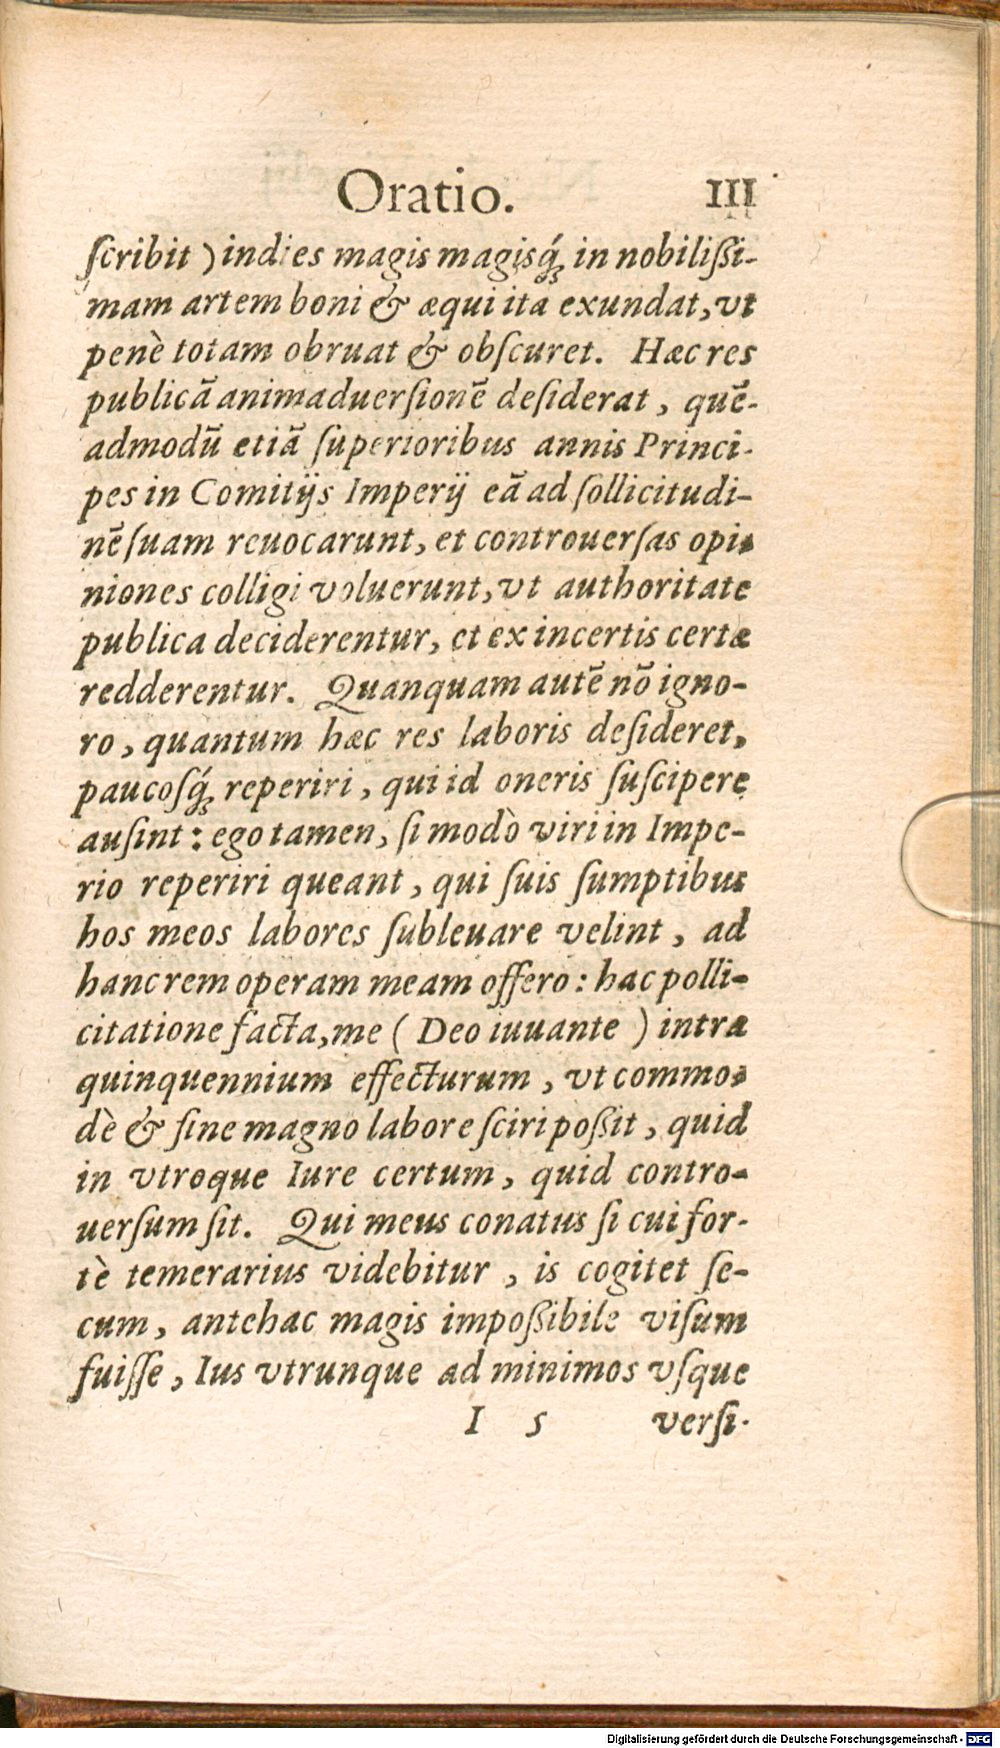 Oratio. III
ſcribit ) indies magis magisq́; in nobilißi-
mam artem boni & æqui ita exundat, vt
penè totam obruat & obſcuret. Hæc res
publicā animaduerſionē deſiderat, quē-
admodū etiā ſuperioribus annis Princi-
pes in Comitijs Imperij eā ad ſollicitudi-
nē ſuam reuocarunt, et controuerſas opi-
niones colligi voluerunt, vt authoritate
publica deciderentur, et ex incertis certæ
redderentur. Quanquam autē nō igno-
ro, quantum hæc res laboris deſideret,
paucosq́; reperiri, qui id oneris ſuſcipere
auſint: ego tamen, ſi modò viri in Impe-
rio reperiri queant, qui ſuis ſumptibus
hos meos labores ſubleuare velint, ad
hanc rem operam meam offero: hac polli-
citatione facta, me ( Deo iuuante ) intra
quinquennium effecturum, vt commo-
dè & ſine magno labore ſciri poßit, quid
in vtroque Iure certum, quid contro-
uerſum ſit. Qui meus conatus ſi cui for-
tè temerarius videbitur, is cogitet ſe-
cum, antehac magis impoßibile viſum
fuiſſe, Ius vtrunque ad minimos vſque
I 5 verſi-
Digitalisierung gefördert durch die Deutsche Forschungsgemeinschaft - DFG